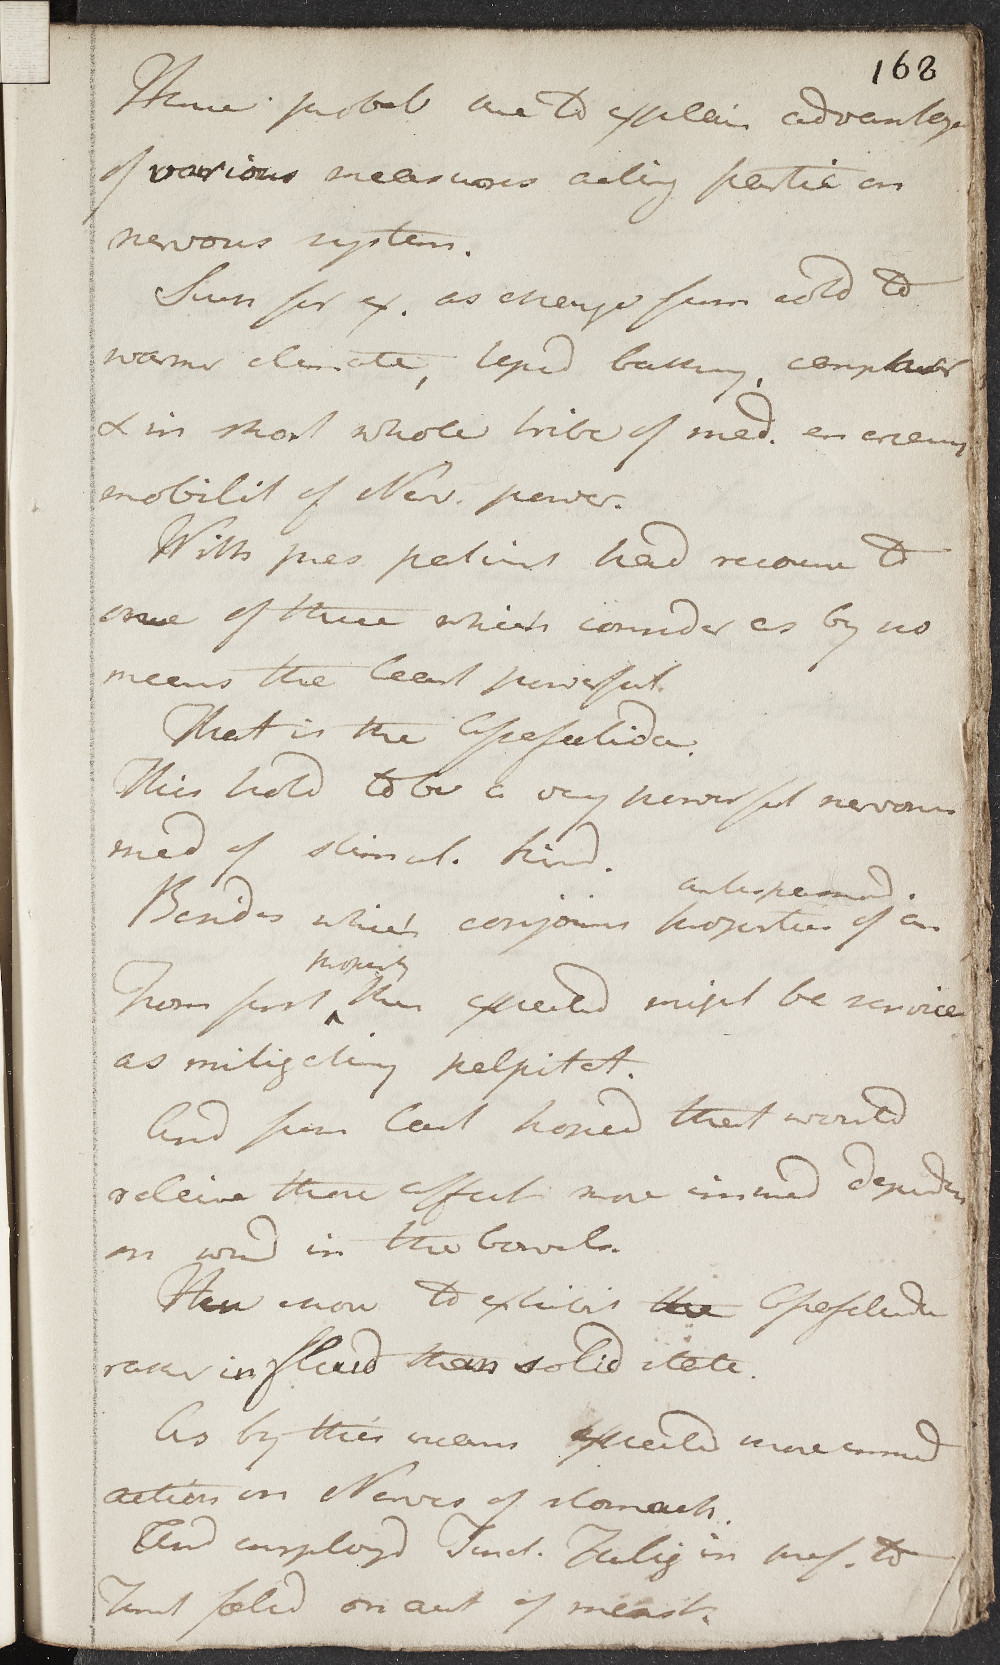 168
Hence probab. are to explain advantage
of various measures acting partic. on
nervous system.
Such for ex. as change from cold to
warmer climate, tepid bathing, camphor
& in short whole tribe of med. encreasg
mobilit of Nerv. power.
With pres patient had recourse to
one of these which consider as by no
means the least powerful.
That is the Assafoetida.
This hold to be a very powerful nervous
med of stimul. kind.
Besides which conjoins properties of an antispasmod.
From first property then expected might be service
as mitigating palpitat.
And from last hoped that would
relieve those effects more immed dependin
on wind in the bowels.
Then chose to exhibit the Assafoetida
rather in fluid than solid state.
As by this means expected more immed
action on Nerves of stomach.
And employd Tinct. Fulig in pref. to
Tinct foetid on act of menst.